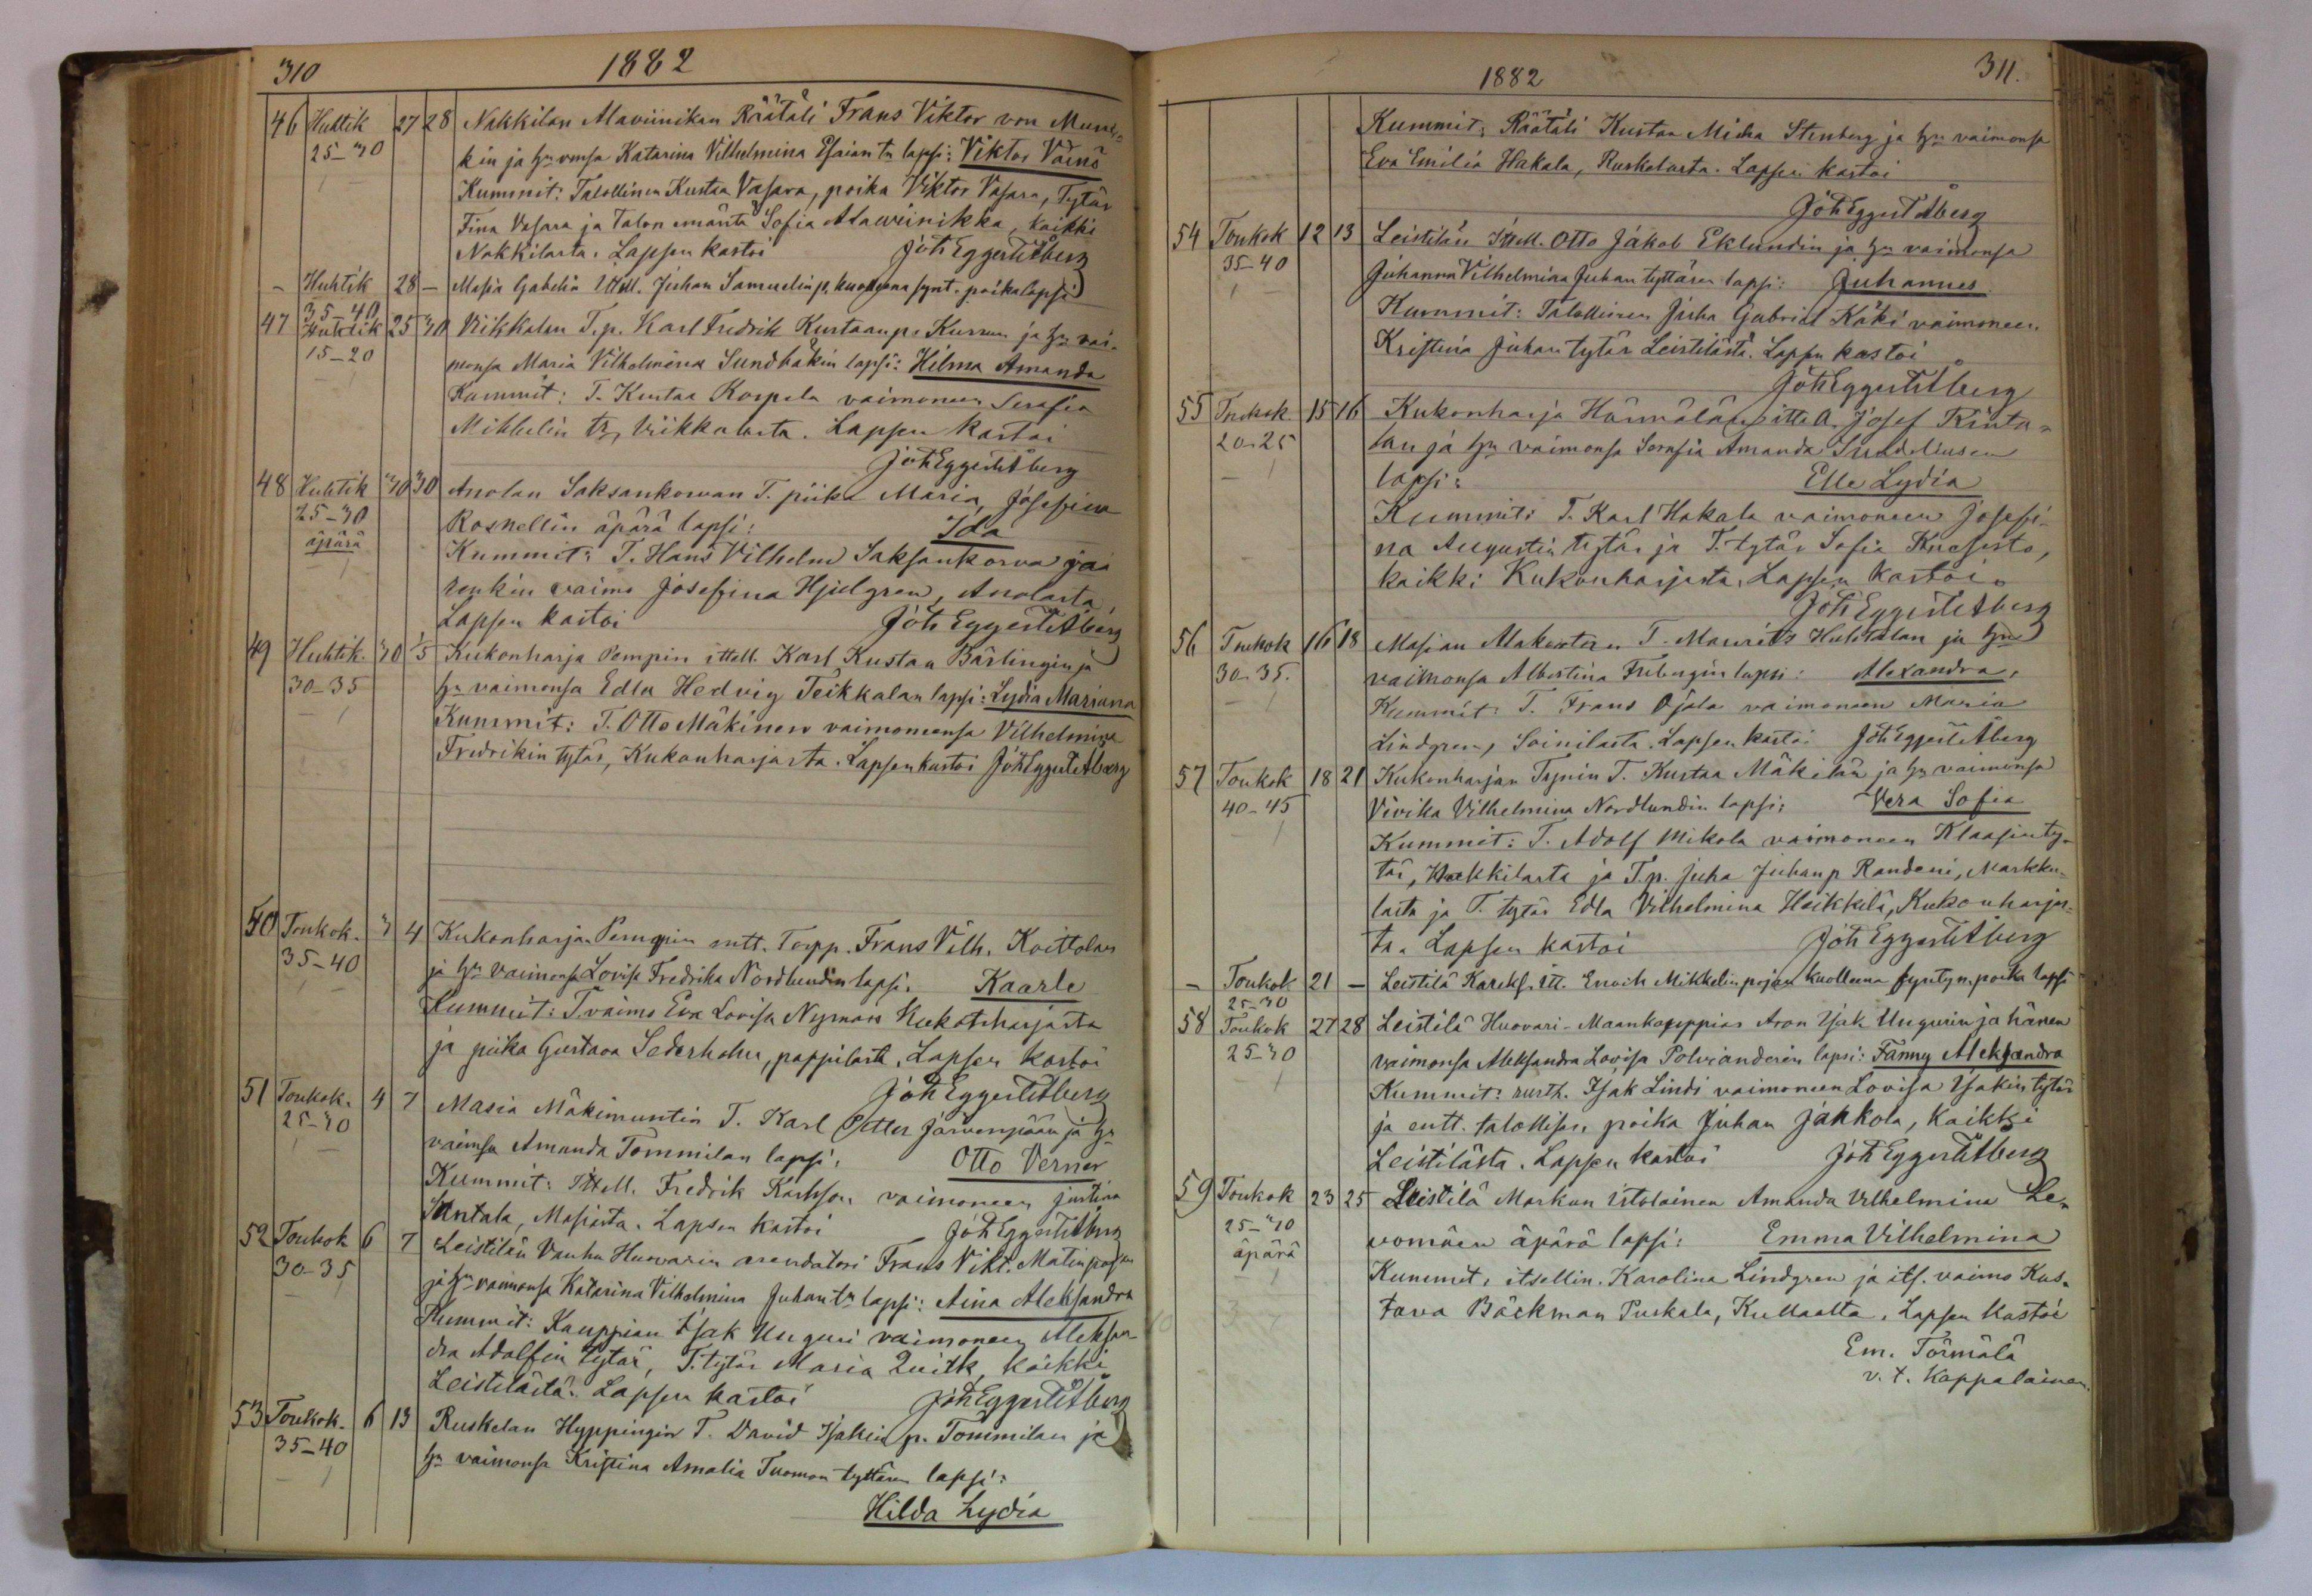 310
1882
46 Huhtik 27 28 Nakkilan Alaviinikan Räätäli Frans Viktor von Mun-
25-30 kin ja hn vmsa Katarina Vilhelmina Esaian tn lapsi: Viktor Väinö
Kummit: Talollinen Kustaa Vasara, poika Viktor Vasara, Tytär
Fina Vasara ja talon emäntä Sofia Alawiinikka, kaikki
Nakkilasta. Lapsen kastoi Joh Eggert Åberg
- Huhtik 28 - Masia Gabelin Ittell. Juhan Samuelin p. kuolleena synt. poikalapsi
35-40
47 Huhtik 25 30 Viikkalan T.p. Karl Fredrik Kustaanp. ja hn vai-
15-20 monsa Maria Vilhelmina Sundbäkin lapsi: Hilma Amanda
Kummit: T. Kustaa Korpela vaimoneen Serafia
Mikkelin tr, Viikkalasta. Lapsen kastoi
Joh Eggert Åberg
48 Huhtik 30 30 Anolan Saksankorvan T. piika Maria Josefina
25-30 Rosnellin äpärä lapsi: Ida
äpärä Kummit: T. Hans Vilhelm Saksankorva ja
renkin vaimo Josefina Hjelgren, Anolasta
Lapsen kastoi Joh Eggert Åberg
49 Huhtik. 30 1/5 Kukonharja Pempin ittell. Karl Kustaa Bärlingin ja
30-35 hn vaimonsa Edla Hedvig Teikkalan lapsi: Lydia Mariana
Kummit: T. Otto Mäkinen vaimoneensa Vilhelmina
Fredrikin tytär, Kukonharjasta. Lapsen kastoi Joh Eggert Åberg
50 Toukok. 3 4 Kukonharja Pempin entt. Torpp. Frans Vilh. Koittolan
35-40 ja hn vaimonsa Lovisa Fredrika Nordlundin lapsi. Kaarle
Kummit: T. vaimo Eva Lovisa Nyman Kukonharjasta
ja piika Gustava Sederholm, pappilasta. Lapsen kastoi
Joh Eggert Åberg
51 Toukok. 4 7 Masia Mäkimuntin T. Karl Petter Järvenpään ja hn
25-30 vaimsa Amanda Tommilan lapsi. Otto Verner
Kummit: Ittell. Fredrik Karlsson vaimoneen Justina
Santala, Masiasta. Lapsen kastoi Joh Eggert Åberg
52 Toukok 6 7 Leistilän Vanha Huovarin arendatori Frans Vikt. Matin pojan
30-35 ja hn vaimonsa Katarina Vilhelmina Juhan tn lapsi: Aina Aleksandra
Kummit: Kauppian Isak Unguri vaimoneen Aleksan-
dra Adolfin tytär, T. tytär Maria Quitk, kaikki
Leistilästä. Lapsen kastoi Joh Eggert Åberg
53 Toukok. 6 13 Ruskelan Hyppingin T. David Isakin p. Tommilan ja
35-40 hn vaimonsa Kristina Amalia Tuomon tyttären lapsi:
Hilda Lydia
1882
311.
Kummit: Räätäli Kustaa Miska Stenberg ja hn vaimonsa
Eva Emilia Hakala, Ruskelasta. Lapsen kastoi
Joh Eggert Åberg
54 Toukok 12 13 Leistilän Ittell. Otto Jakob Eklundin ja hn vaimonsa
35-40 Juhanna Vilhelmina Juhan tyttären lapsi: Juhannes.
Kummit: Talollinen Juha Gabriel Käki vaimoneen
Kristina Juhan tytär Leistilästä. Lapsen kastoi
Joh Eggert Åberg
55 Toukok 15 16 Kukonharja Härmälän ittell. Josef Rinta-
20-25 lan ja hn vaimonsa Serafia Amanda Sundeliusen
lapsi: Elle Lydia
Kummit: T. Karl Hakala vaimoneen Josefi-
na Augustin tytär ja T. tytär Sofia
kaikki Kukonharjasta. Lapsen kastoi.
Joh Eggert Åberg
56 Toukok 16 18 Masian T. Maurits Huhtalan ja hn
30-35. vaimonsa Albertina Fribergin lapsi: Alexandra.
Kummit: T. Frans Ojala vaimoneen Maria
Lindgren, Soinilasta. Lapsen kastoi Joh Eggert Åberg
57 Toukok 18 21 Kukonharjan Tynin T. Kustaa Mäkilän ja hn vaimonsa
40-45 Vivika Vilhelmina Nordlundin lapsi: Vera Sofia
Kummit: T. Adolf Mikola vaimoneen Klaasin ty-
tär, Nakkilasta ja T.p. Juha Juhan p Randeni, Markku-
lasta ja T. tytär Edla Vilhelmina Heikkilä, Kukonharjas-
ta. Lapsen kastoi Joh Eggert Åberg
- Toukok 21 - Leistilä Itt. Enoch Mikkelin pojan kuolleena syntyn. poika lapsi
25-30
58 Toukok 27 28 Leistilä Huovari-Maankauppias Aron Isak Ungurin ja hänen
25-30 vaimonsa Aleksandra Lovisa Polvianderin lapsi: Fanny Aleksandra
Kummit: rusth. Isak Lindi vaimoneen Lovisa Isakin tytär
ja entt. talollisen poika Juhan Jakkola, kaikki
Leistilästä. Lapsen kastoi Joh Eggert Åberg
59 Toukok 23 25 Leistilä Markun Istolainen Amanda Vilhelmina Le-
25-30 vomäen äpärä lapsi: Emma Vilhelmina
äpärä Kummit, itsellin. Karolina Lindgren ja its. vaimo Kus-
tava Bäckman Puskala, Kullaalta. Lapsen kastoi
Em. Törmälä
v. t. Kappalainen.